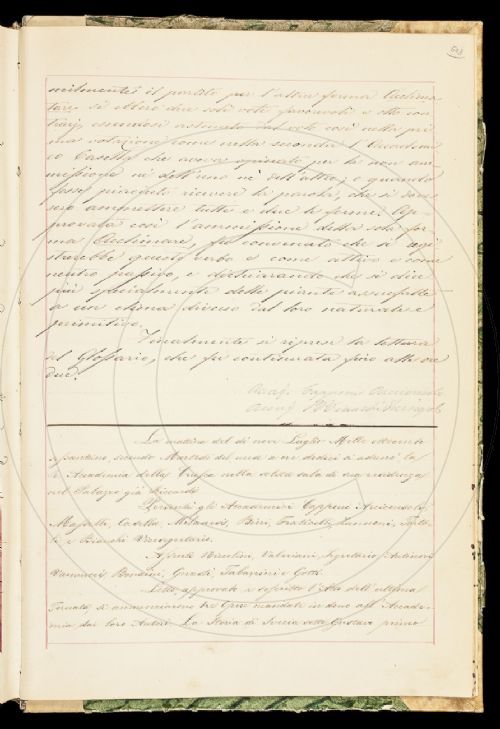 messo
il partito per l'altra forma Acclima
tare si ebbero due soli voti favorevoli e otto con
trarj, essendosi astenuto dal voto così nella pri
ma votazione come nella seconda l'Accademi
co Casella, che aveva opinato per la non am
missione nè dell'uno nè dell'altro; o quando
fosse piaciuto ricevere la parola, che si doves
sero ammettere tutte e due le forme. Ap
provata così l'ammissione della sola for
ma Acclimare, fu convenuto che si regi
strerebbe questo verbo e come attivo e come
neutro passivo, e dichiarando che si dice
più specialmente delle piante assuefatte
a un clima diverso dal loro naturale e
primitivo.
Finalmente si riprese la lettura
del Glossario, che fu continuata fino alle ore
due.
La mattina del dì nove Luglio Mille ottocento
sessantuno, secondo Martedì del mese a ore dodici si adunò la
R. Accademia della Crusca nella solita sala di sua residenza
nel Palazzo già Riccardi.
Presenti gli Accademici Capponi Arciconsolo,
Mazzetti, Casella, Milanesi, Bini, Fraticelli, Zannoni,
e Bianchi Vicesegretario.
Assenti Niccolini, Valeriani, Segretario, Antinori
Vannucci, Bonaini, Girardi, Tabarrini e Gotti.
Letto, approvato e firmato l'Atto dell'ultima
Tornata, si annunziarono tre Opere mandate in dono all'Accade-
mia dai loro Autori. La Storia di Svezia sotto Gustavo primo